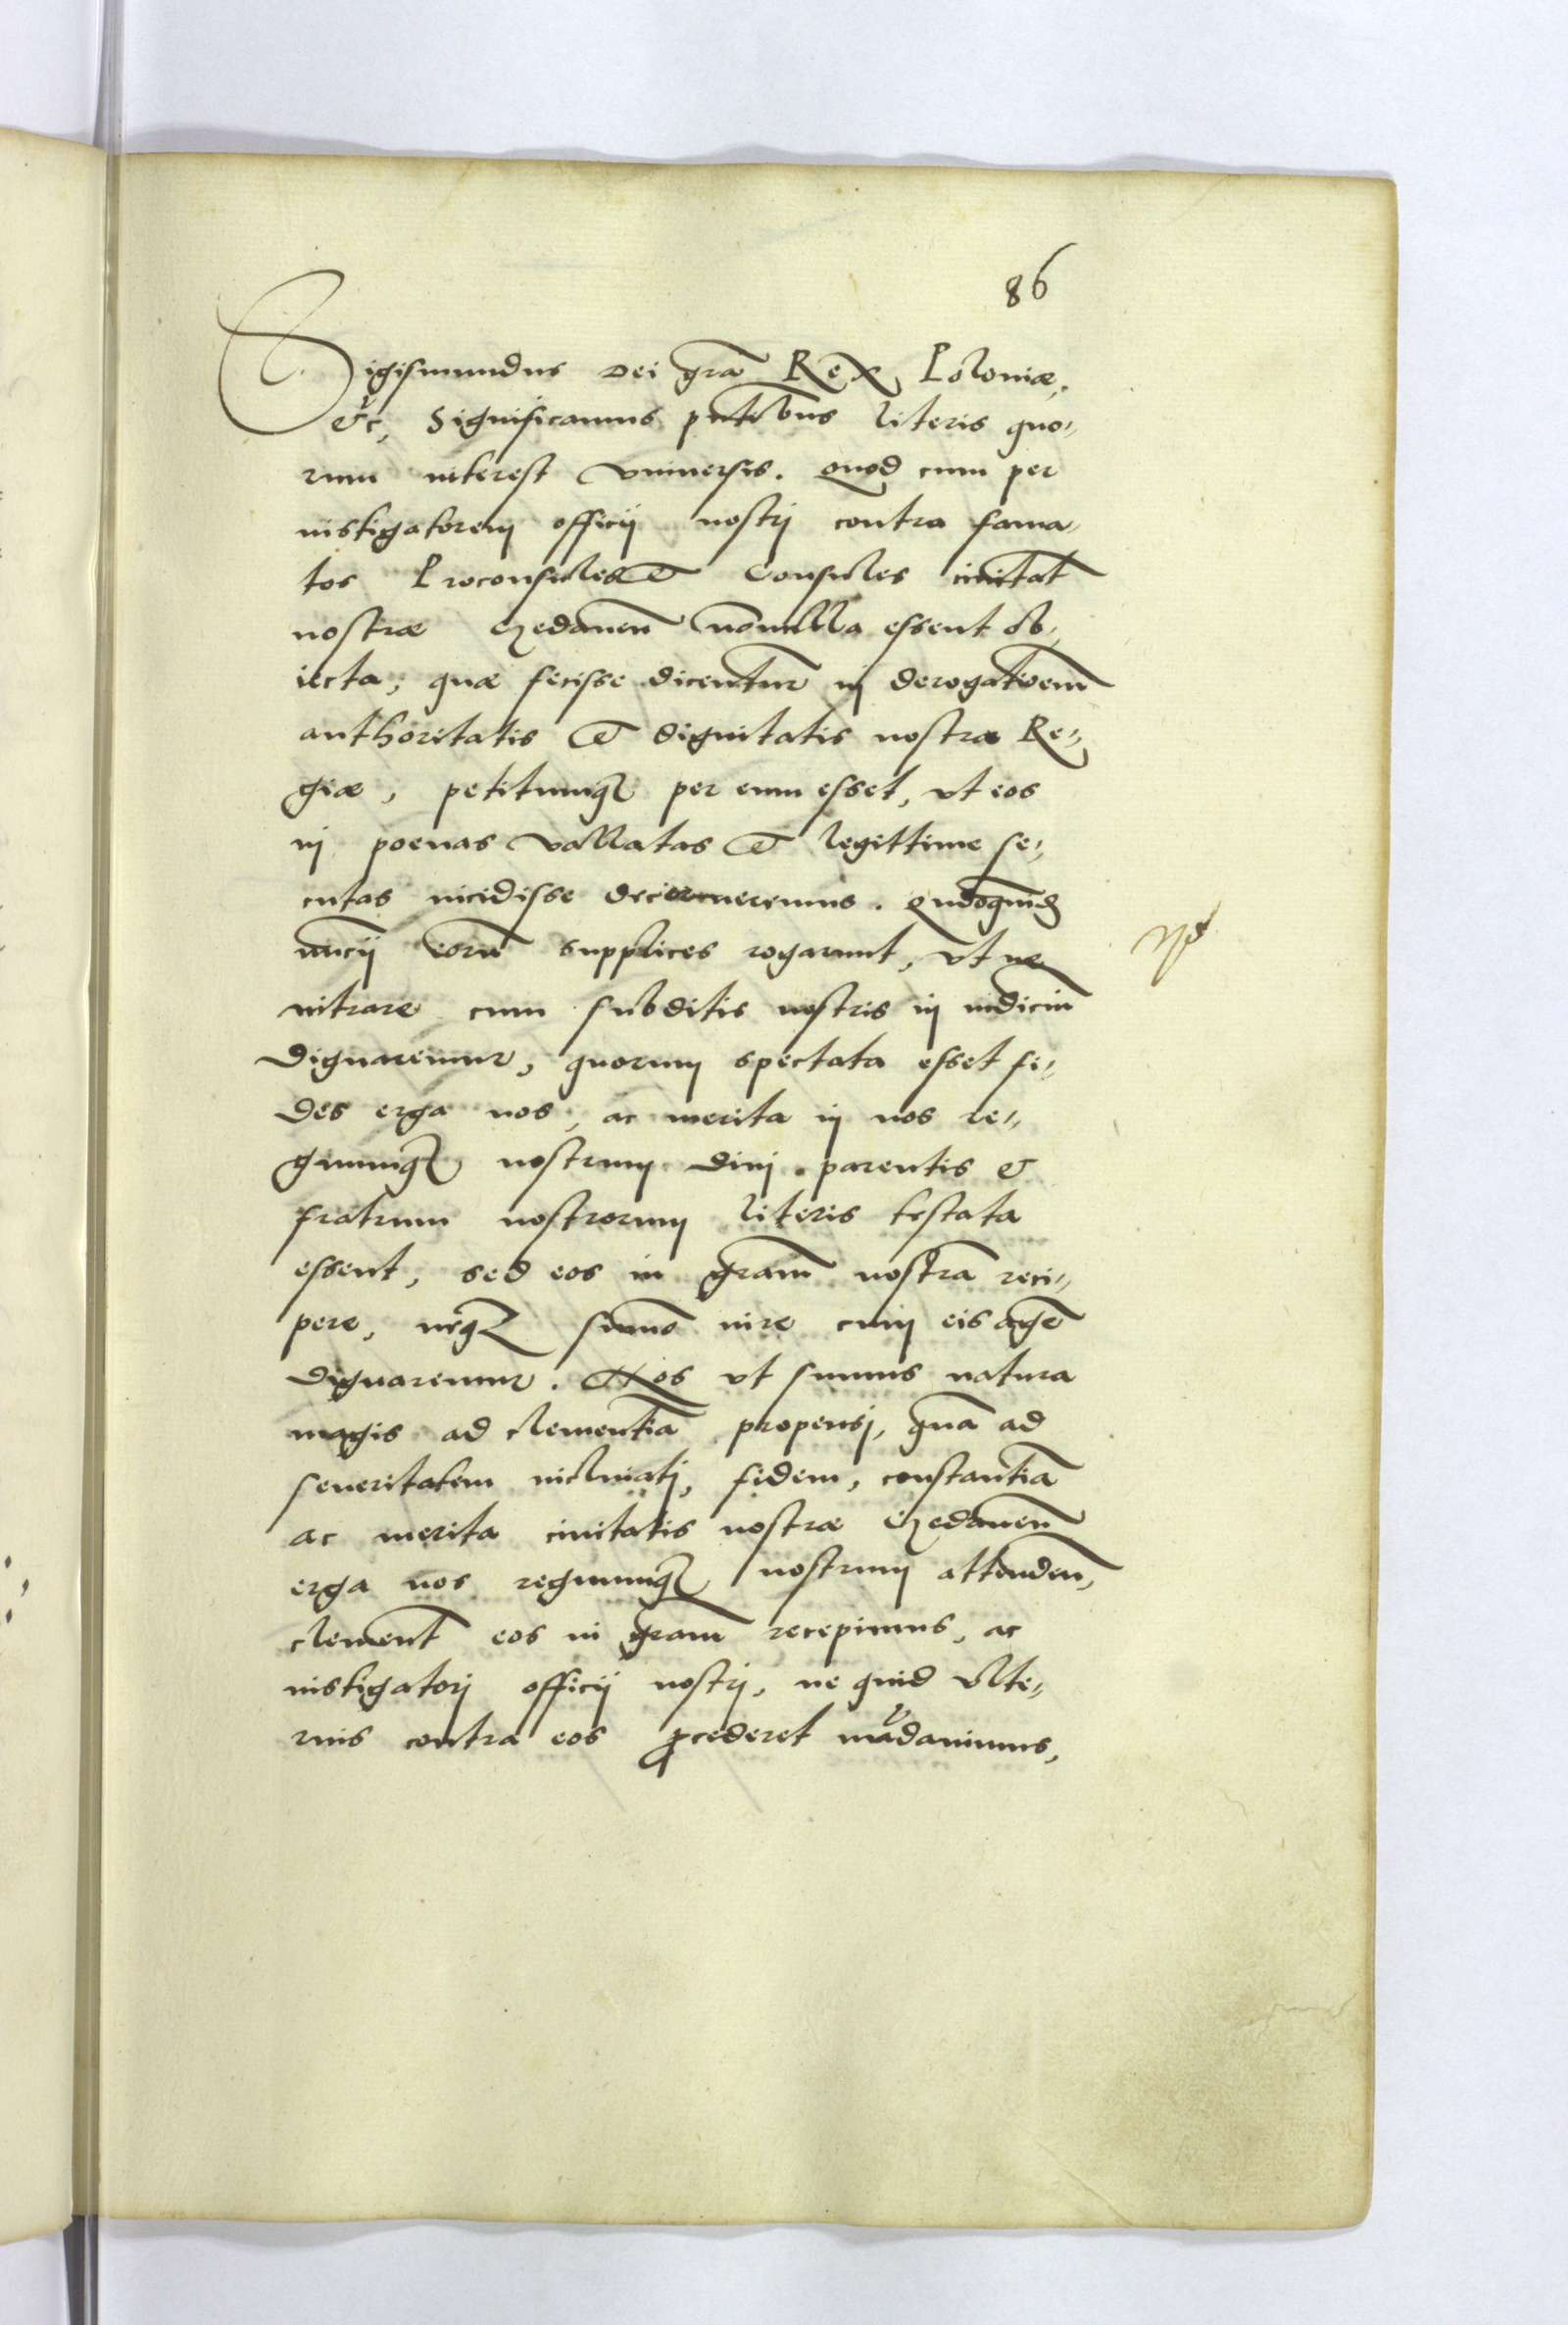 86
Sigismundus Dei gra͞ Rex Poloniæ,
etc, Significamus pn͞tibus literis quo„
rum interest vniuersis. Quod cum per
instigatorem officij nostrj contra fama„
tos Proconsules et Consules ciuitat͞
nostræ Gedanen͞ no͞nulla essent ob„
iecta; quæ fecisse dicentur͞ in derogatioem͞
authoritatis et dignitatis nostræ Re„
giæ, petitumq3 per eum esset, vt eos
in poenas vallatas et legittime se„
cutas incidisse decerneremus. Quo͞doquid3
nu͞cij eoru͞ supplices rogarunt, vt ne
intrare cum subditis nostris in iudiciu͞
dignaremur, quorum spectata esset fi„
des erga nos, ac merita in nos re„
gnumq3 nostrum diuj parentis et
fratrum nostrorum literis testata
essent, sed eos in gram͞ nostra͞ reci„
pere, neq3 summo͞ iure cum eis age͞
dignaremur. Nos vt sumus natura
magis ad clementia͞ propensj, qua͞ ad
seueritatem inclinatj, fidem, constantia͞
ac merita ciuitatis nostræ Gedanen͞
erga nos regnumq3 nostrum attenden͞,
clement͞ eos in gram͞ recepimus, ac
instigatorj officij nostrj, ne quid vlte„
rius contra eos ꝓcederet ma͞dauimus,